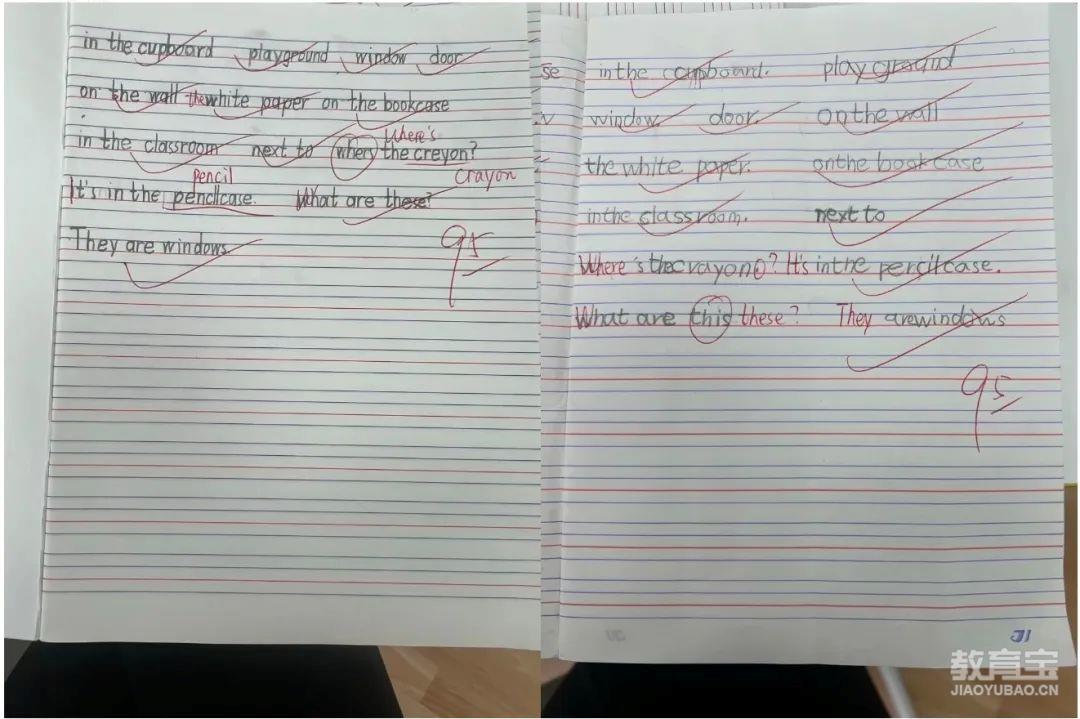 in the cupboard playground window door
on the wall the white paper on the bookcase
Where's
in the classroom next to wher the creyon?
pencil crayon
It's in the penclcase. What are these?
They are windows.
95
se in the cupboard. playground
window door. On the wall
the white paper. on the bookcase
in the classroom. next to
Where's the crayon? It's in the pencilcase.
What are this these? They are windows
95
教育宝
JIAOYUBAO.CN